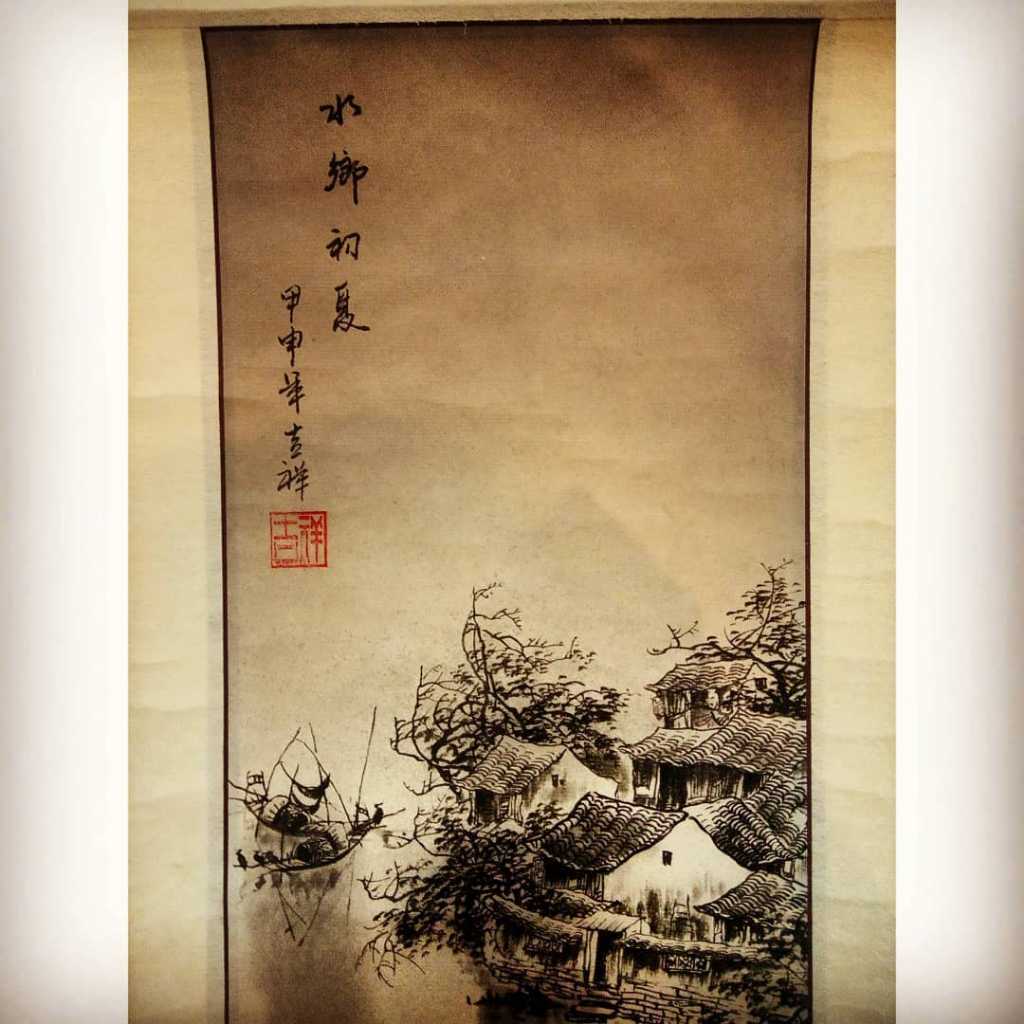 水鄉初夏
甲申年吉祥
吉祥